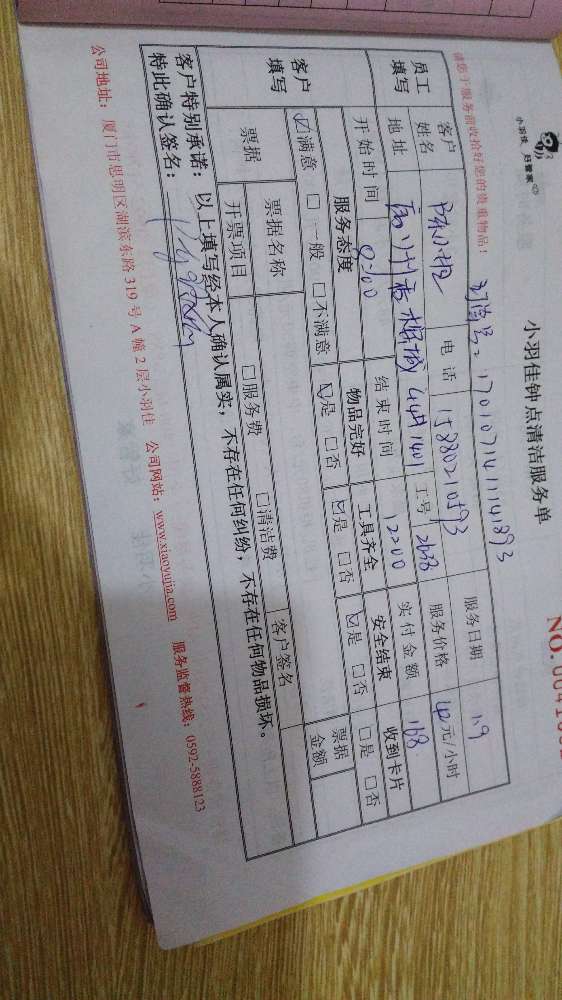 小羽佳 好管家
小羽佳钟点清洁服务单
请您于服务前收拾好您的贵重物品!
170107141141893
员工填写
客户姓名 电话 15880210593 服务日期 1.9
地址 工号 2638 服务价格 42元/小时
开始时间 9:00 结束时间 12:00 实付金额 168
客户填写
服务态度 物品完好 工具齐全 安全结束 收到卡片
☑满意 □一般 □不满意 ☑是 □否 ☑是 □否 ☑是 □否 □是 □否
票据 票据名称 票据金额
开票项目 □服务费 □清洁费 客户签名
客户特别承诺:以上填写经本人确认属实,不存在任何纠纷,不存在任何物品损坏。
特此确认签名:
公司地址:厦门市思明区湖滨东路319号A幢2层小羽佳 公司网站:www.xiaoyujia.com 服务监督热线:0592-5888123